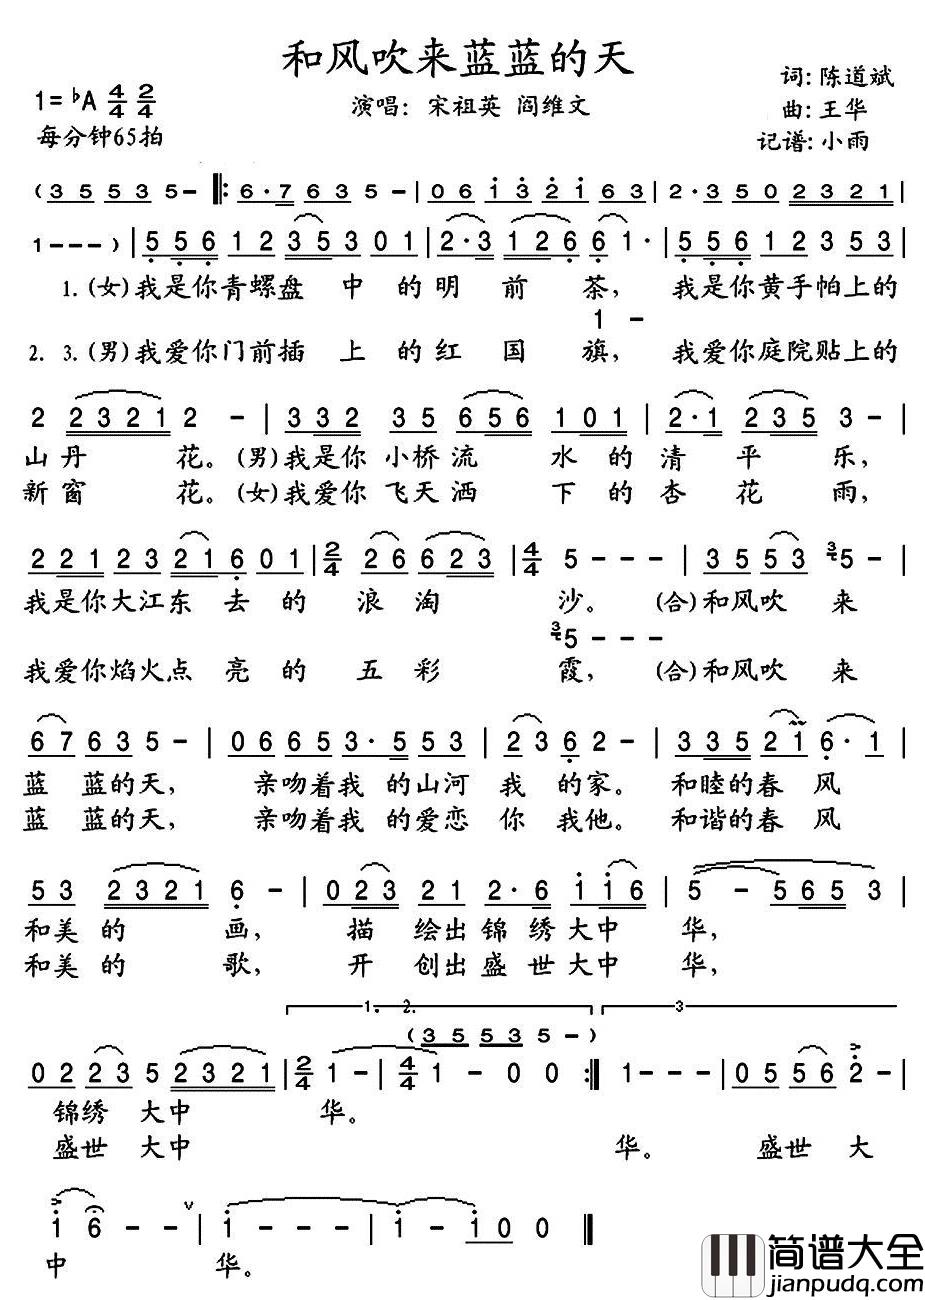 和风吹来蓝蓝的天
1=♭A 4/4 2/4
演唱: 宋祖英 阎维文
词:陈道斌
曲:王华
每分钟65拍
记谱:小雨
(3 5 5 3 5 - ‖: 6·7 6 3 5 - | 0 6 i 3 2 i 6 3 | 2·3 5 0 2 3 2 1 |
1 - - - ) | 5 5 6 1 2 3 5 3 0 1 | 2·3 1 2 6 6 1· | 5 5 6 1 2 3 5 3 |
1.(女)我是你青螺盘 中 的 明 前 茶, 我是你黄手帕上的
1 -
2. 3.(男)我爱你门前插 上 的 红 国 旗, 我爱你庭院贴上的
2 2 3 2 1 2 - | 3 3 2 3 5 6 5 6 1 0 1 | 2·1 2 3 5 3 - |
山 丹 花。(男)我是你 小桥 流 水 的 清 平 乐,
新 窗 花。(女)我爱你 飞天 洒 下 的 杏 花 雨,
2 2 1 2 3 2 1 6 0 1 | 2/4 2 6 6 2 3 | 4/4 5 - - - | 3 5 5 3 3/7 5 - |
我是你大江东 去 的 浪 淘 沙。 (合)和风吹 来
3/7 5 - - -
我爱你焰火点 亮 的 五 彩 霞, (合)和风吹 来
6 7 6 3 5 - | 0 6 6 5 3·5 5 3 | 2 3 6 2 - | 3 3 5 2 1 6·1 |
蓝 蓝的天, 亲吻着我 的山河 我 的家。 和睦的春 风
蓝 蓝的天, 亲吻着我 的爱恋 你 我他。 和谐的春 风
5 3 2 3 2 1 6 - | 0 2 3 2 1 2·6 i i 6 | 5 - 5 6 5 3 |
和美 的 画, 描 绘出 锦 绣大中 华,
和美 的 歌, 开 创出 盛 世大中 华,
1. 2. 3
(3 5 5 3 5 - )
0 2 2 3 5 2 3 2 1 | 2/4 1 - | 4/4 1 - 0 0 :‖ 1 - - - | 0 5 5 6 2 - |
锦绣 大中 华。
盛世 大中 华。 盛世 大
i 6 - - ∨ | i - - - | i - i 0 0 ‖
中 华。
简谱大全
jianpudq.com